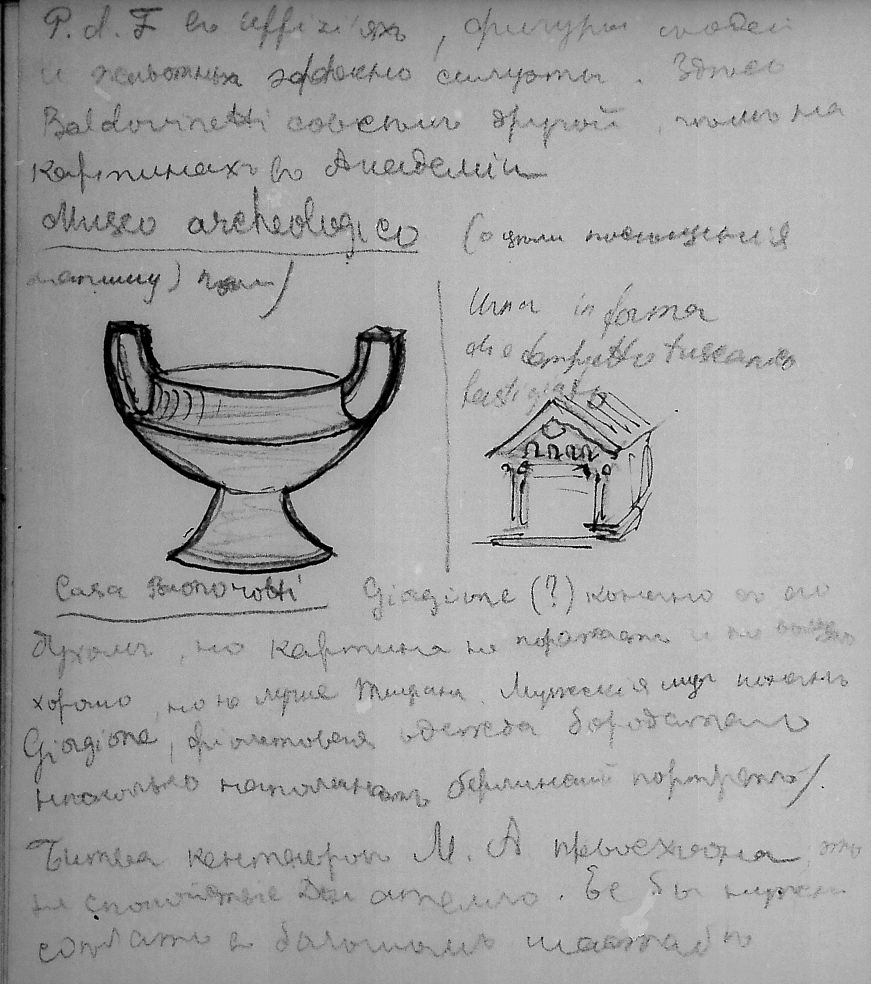 P. d. F въ Uffizi'яхъ, фигуры людей
и животныхъ эффектно силуэты. Здесь
Baldovinetti совсемъ другой, чемъ на
картинахъ въ Академіи
Museo archeologico (о цели посещенія
Urna in forma
di tempietto tuscano
fastigiato
Casa Buonarotti Giorgione (?) конечно въ его
духомъ, но картина не поражаетъ и не
хорошо, но не лучше Тициана. Мужскія лица
Giorgione, фіолетовая одежда бородатаго
несколько напоминаетъ берлинскій портретъ/.
Битва кентавровъ М. А превосходна, это
не спокойствіе Донателло. Ее бы нужно
создать въ большомъ масштабе